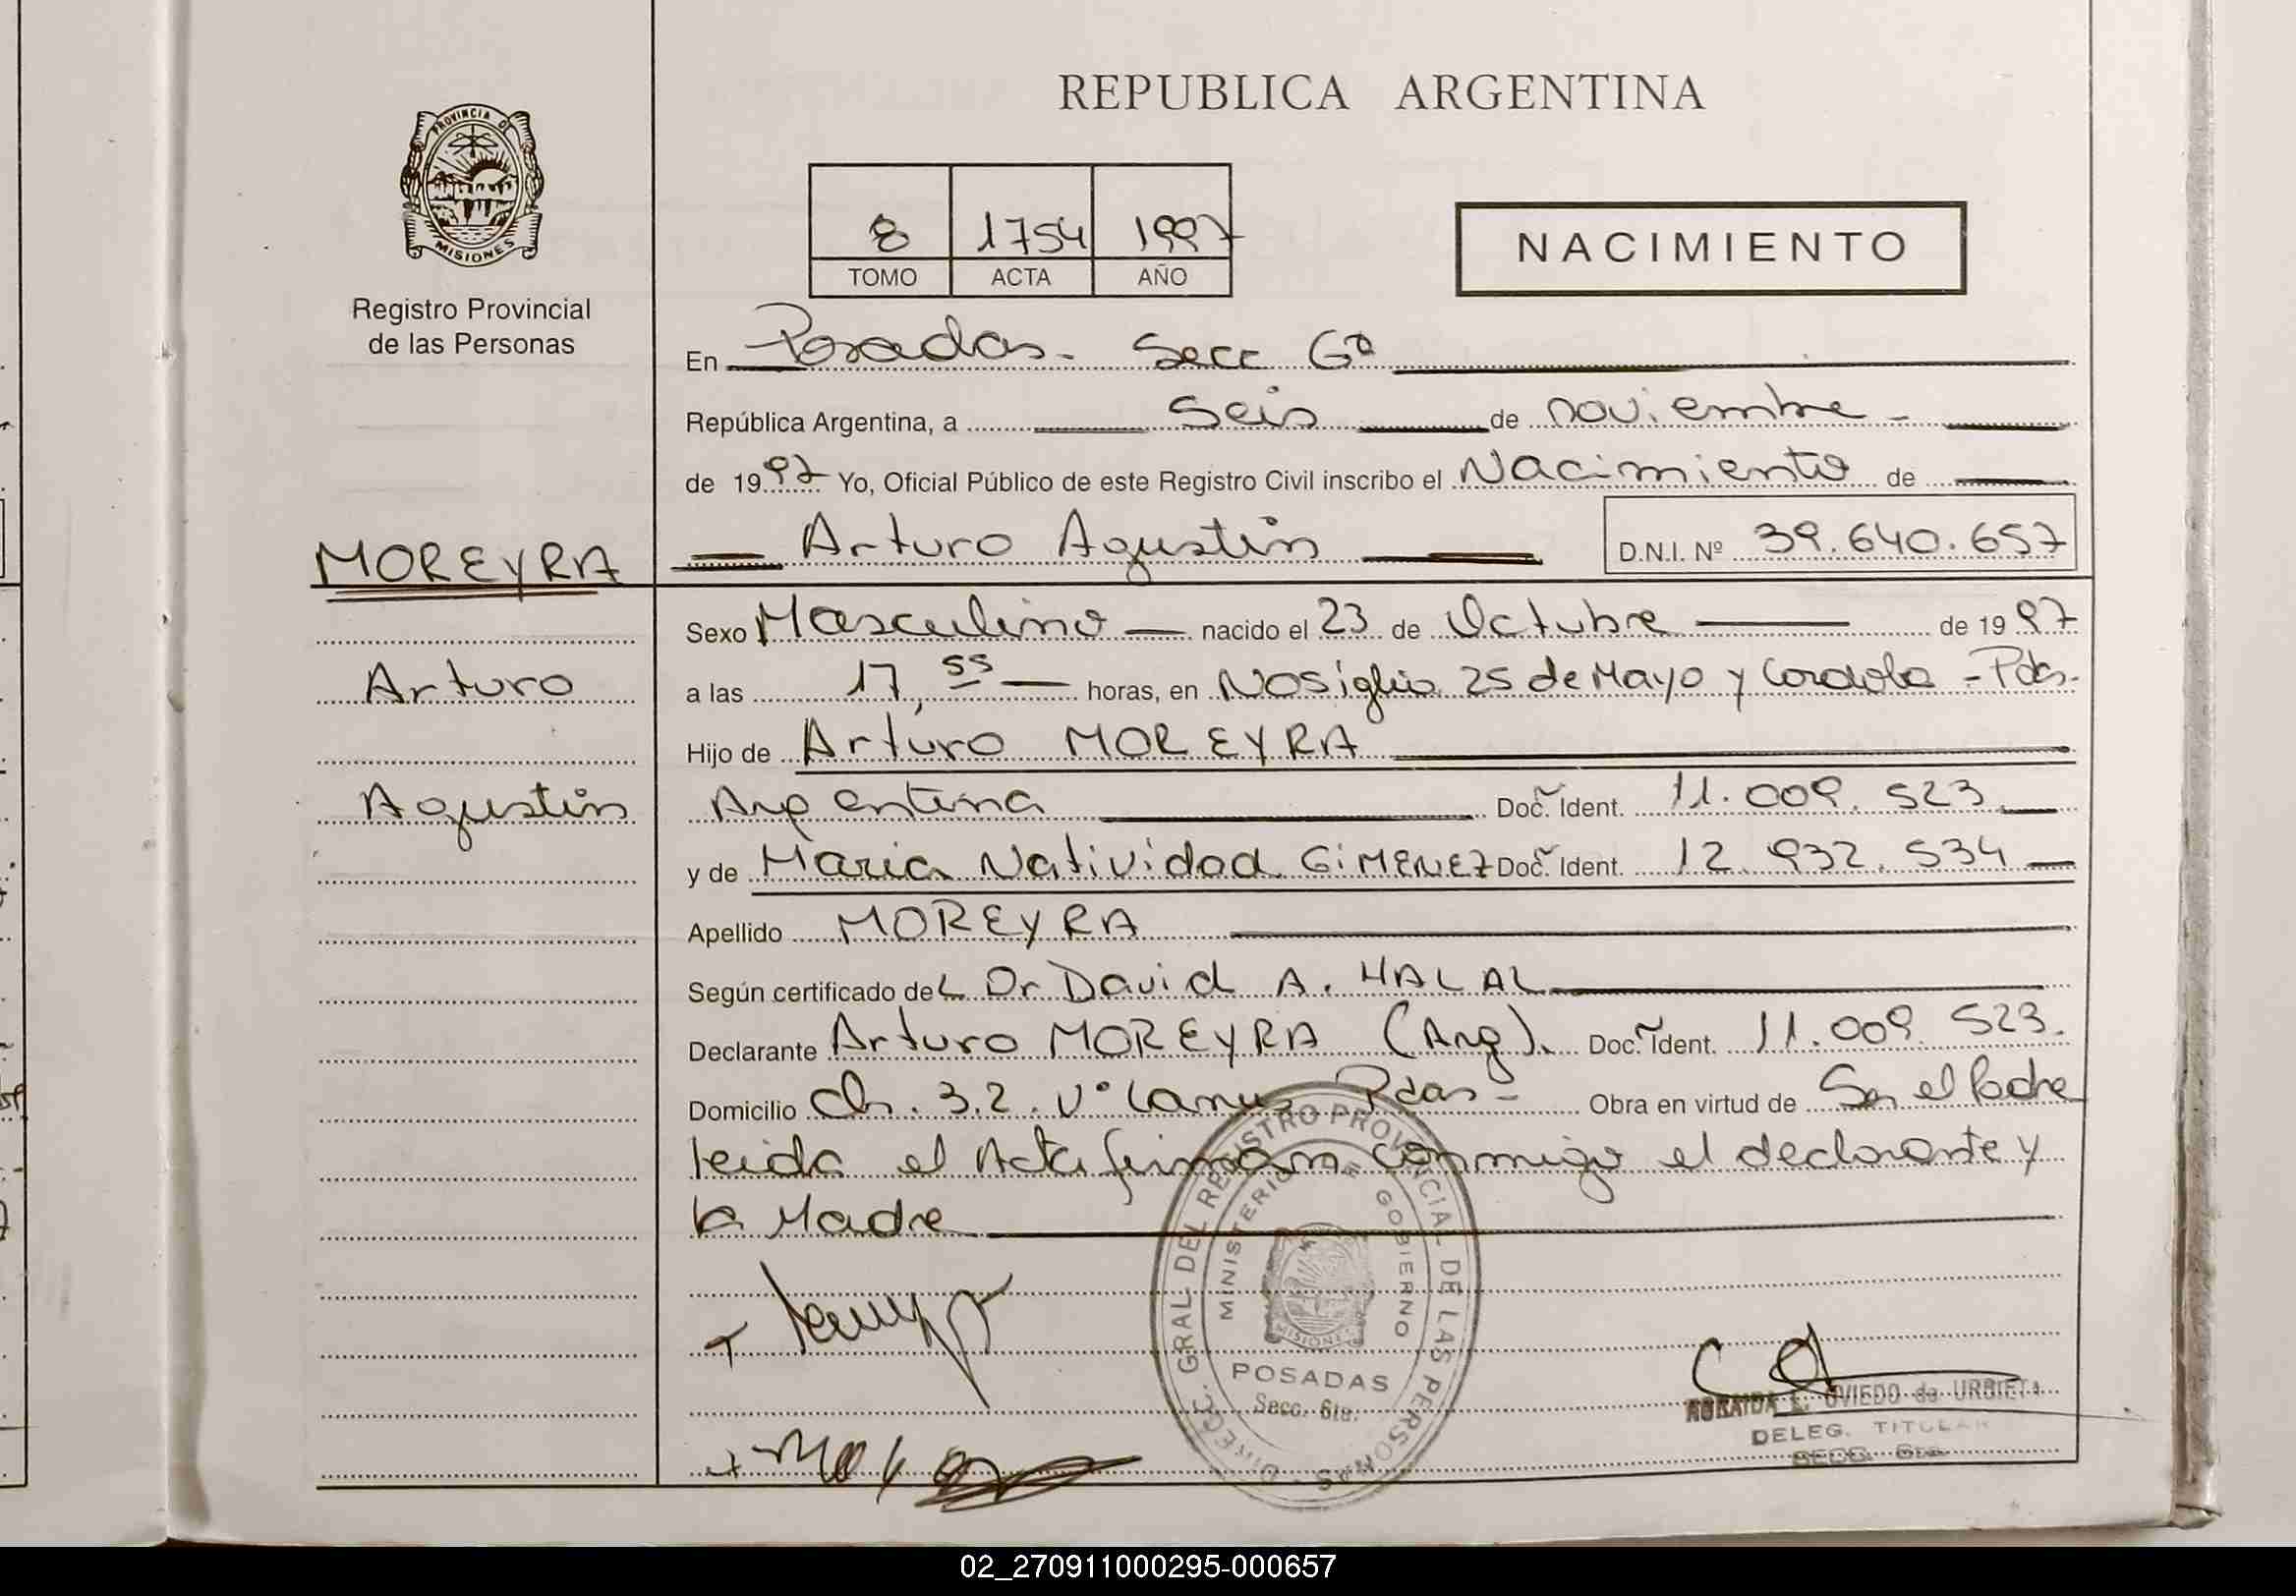 REPUBLICA ARGENTINA
PROVINCIA DE
MISIONES
Registro Provincial
de las Personas
8 1754 1997
TOMO ACTA AÑO
NACIMIENTO
En Posadas - Secc 6ª
República Argentina, a seis de noviembre -
de 1997 Yo, Oficial Público de este Registro Civil inscribo el Nacimiento de
Arturo Agustin D.N.I. Nº 39.640.657
MOREYRA
Arturo
Agustin
Sexo Masculino nacido el 23 de Octubre de 1997
a las 17,55 horas, en Nosiglia 25 de Mayo y Cordoba - Pdas.
Hijo de Arturo MOREYRA
Argentina Doc. Ident. 11.009.523
y de Maria Natividad GiMENEZ Doc. Ident. 12.932.534
Apellido MOREYRA
Según certificado del Dr David A. HALAL
Declarante Arturo MOREYRA (Arg). Doc. Ident. 11.009.523.
Domicilio Ch. 32. Vº Lanus Pdas - Obra en virtud de Ser el Padre
leida el Acta firman conmigo el declarante y
la Madre
DIRECC. GRAL DEL REGISTRO PROVINCIAL DE LAS PERSONAS
MINISTERIO DE GOBIERNO
MISIONES
POSADAS
Secc. 6ta.
E. OVIEDO de URBIETA
DELEG. TITULAR
SECC. 6ta.
02_270911000295-000657